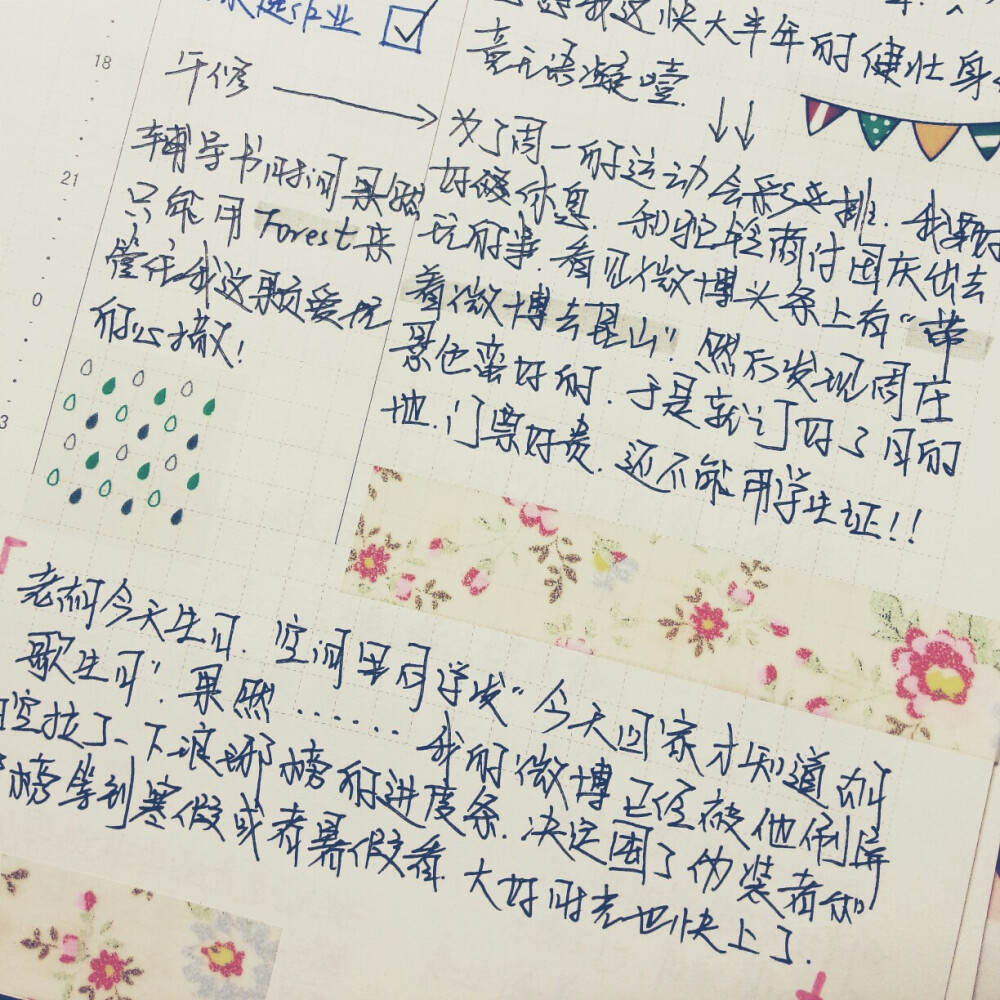 作业
18
午修
辅导书时间果然
21
只能用Forest来
管住我这颗爱玩
0
的心撒!
3
我这快大半年的健壮身
竟无语凝噎.
为了周一的运动会彩连排. 我要好
好休息. 和商讨国庆出去
玩的事. 看见微博头条上有“带
着微博去昆山”. 然后发现周庄
景色蛮好的. 于是就订好了目的
地. 门票好贵. 还不能用学生证!!
老胡今天生日. 空间里同学发“今天回家才知道胡
歌生日”. 果然......我的微博已经被他刷屏
空拉了一下琅琊榜的进度条. 决定囤了伪装者和
榜等到寒假或者暑假看. 大好时光也快上了.